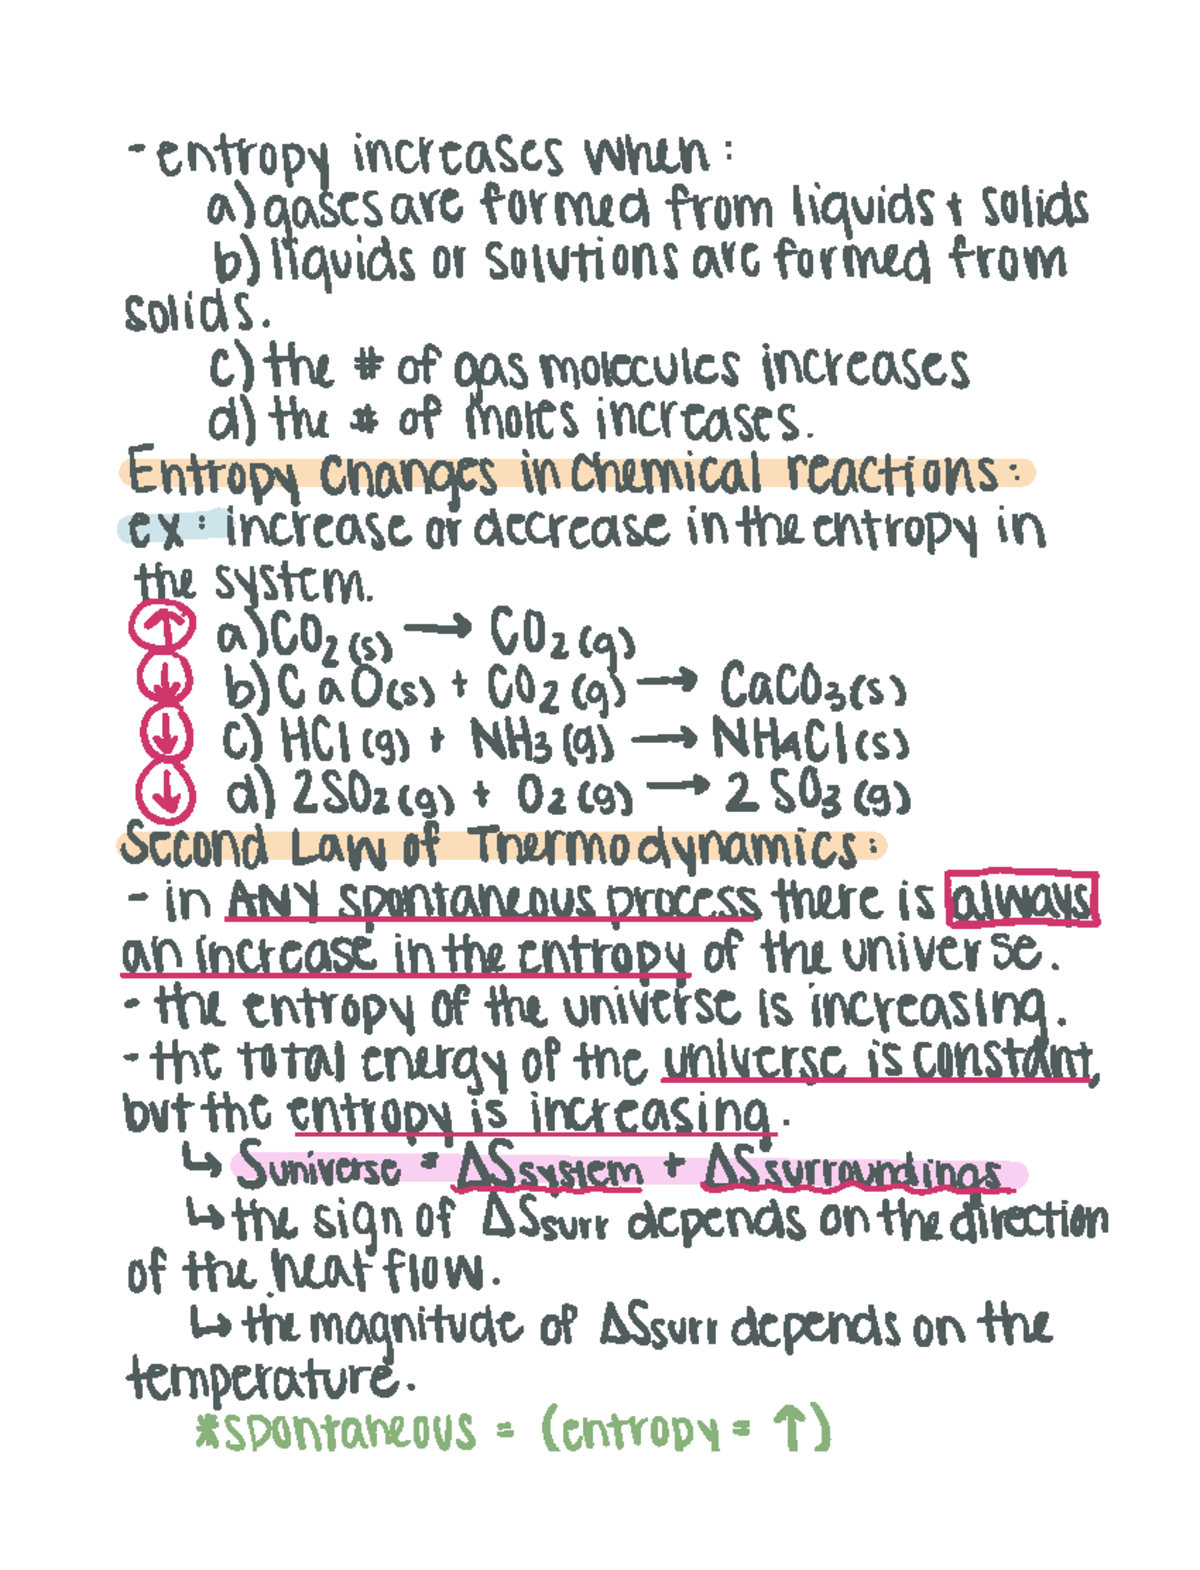 - entropy increases when:
a) gases are formed from liquids + solids
b) liquids or solutions are formed from
solids.
c) the # of gas molecules increases
d) the # of moles increases.
Entropy Changes in Chemical reactions:
ex: increase or decrease in the entropy in
the system.
↑ a) CO₂(s) → CO₂(g)
↓ b) CaO(s) + CO₂(g) → CaCO₃(s)
↓ c) HCl(g) + NH₃(g) → NH₄Cl(s)
↓ d) 2SO₂(g) + O₂(g) → 2SO₃(g)
Second Law of Thermodynamics:
- in ANY spontaneous process there is always
an increase in the entropy of the universe.
- the entropy of the universe is increasing.
- the total energy of the universe is constant,
but the entropy is increasing.
↳ Suniverse = ΔSsystem + ΔSsurroundings
↳ the sign of ΔSsurr depends on the direction
of the heat flow.
↳ the magnitude of ΔSsurr depends on the
temperature.
*spontaneous = (entropy = ↑)